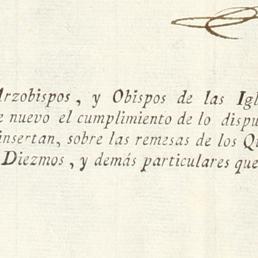 Arzobispos, y Obispos de las Igl
e nuevo el cumplimiento de lo dispu
insertan, sobre las remesas de los Qu
Diezmos, y demás particulares que